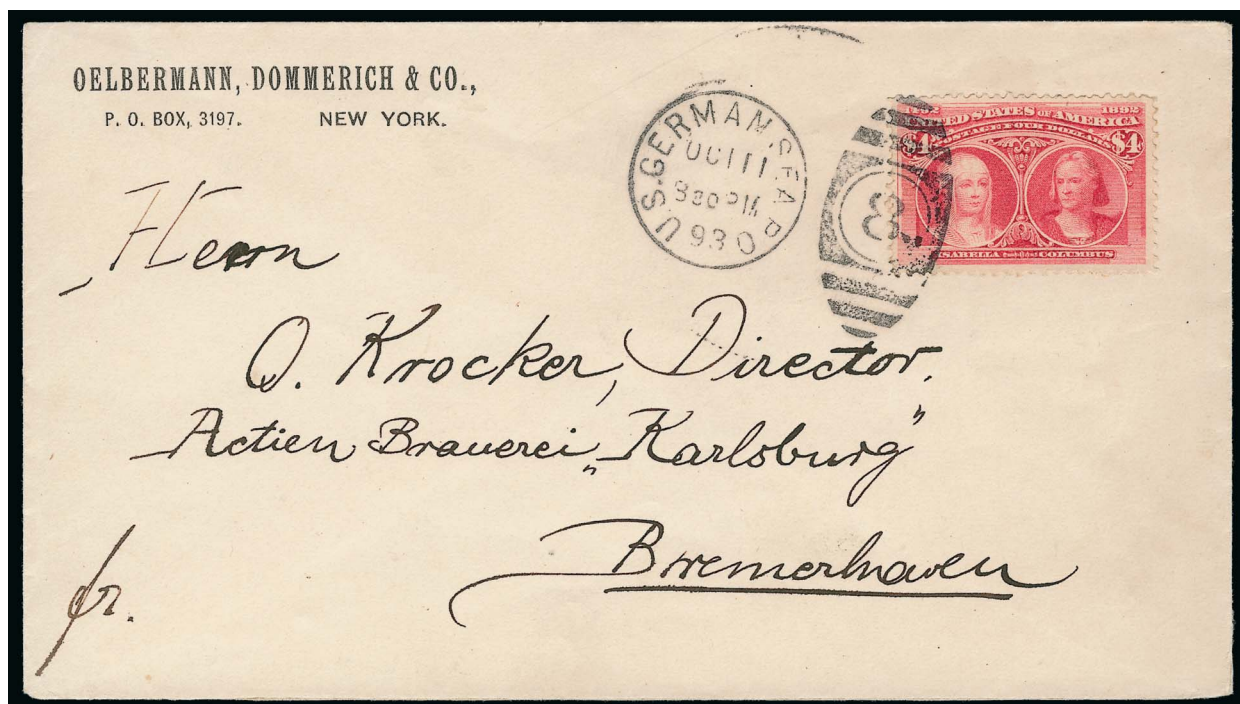 OELBERMANN, DOMMERICH & CO.,
P. O. BOX, 3197. NEW YORK.
U.S. GERMAN. S.E.A.P.O
OCT 11
93
8
1892
UNITED STATES OF AMERICA
POSTAGE FOUR DOLLARS
$4 $4
ISABELLA COLUMBUS
Herrn
O. Krocker, Director,
Actien Brauerei „Karlsburg"
Bremerhaven
fr.